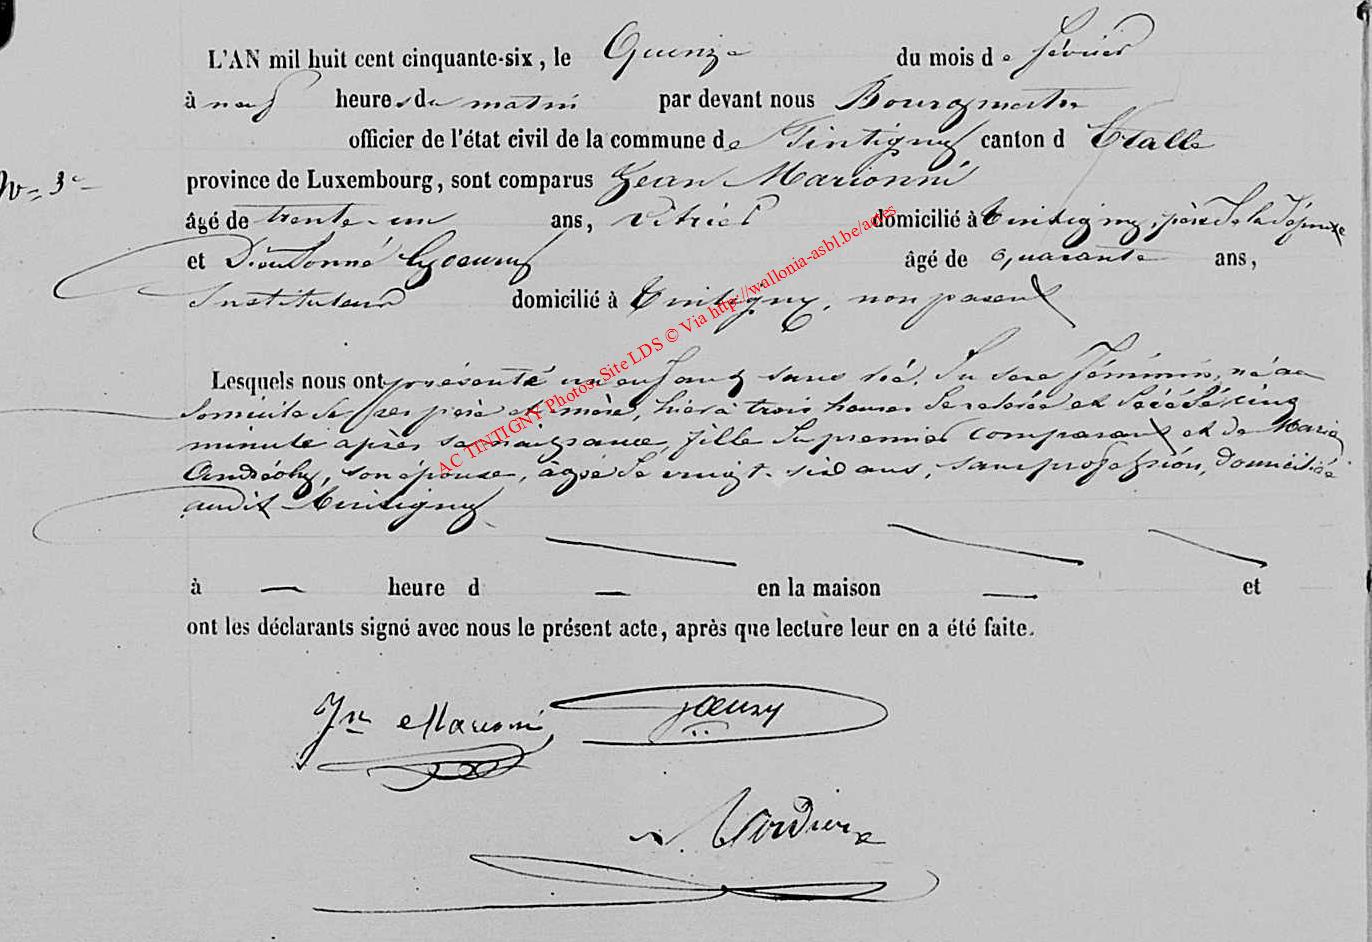 L'AN mil huit cent cinquante-six, le Quinze du mois de février
à neuf heures du matin par devant nous Bourgmestre
officier de l'état civil de la commune de Tintigny canton d Etalle
N° 3
province de Luxembourg, sont comparus Jean Marionni
âgé de trente-un ans, vitrier domicilié à Tintigny, père de la défunte
et Dieudonné âgé de quarante ans,
Instituteur domicilié à Tintigny, non parent
Lesquels nous ont présenté un enfant sans vie, du sexe féminin, né au
domicile de ses père et mère, hier à trois heures de relevée et décédé cinq
minute après sa naissance, fille du premier comparant et de Marie
son épouse, agée de vingt-six ans, sans profession, domiciliée
audit Tintigny
à — heure d — en la maison — et
ont les déclarants signé avec nous le présent acte, après que lecture leur en a été faite.
Jn Marionni
AC TINTIGNY Photos, Site LDS © Via http://wallonia-asbl.be/actes